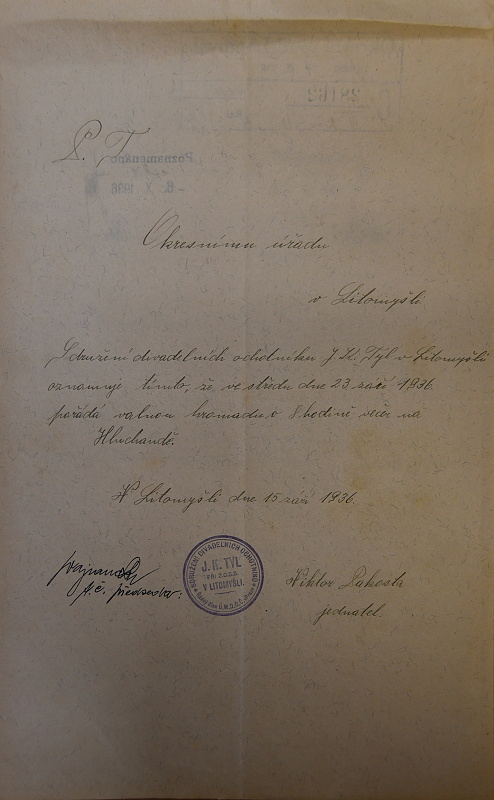 P. T.
Okresnímu úřadu
v Litomyšli
Sdružení divadelních ochotníku J. K. Tyl v Litomyšli
oznamuje tímto, že ve středu dne 23 září 1936.
pořádá valnou hromadu o 8 hodině večer na
Hluchandě.
V Litomyšli dne 15 září 1936.
t. č. předseda.
SDRUŽENÍ DIVADELNÍCH OCHOTNÍKŮ
J. K. TYL
V LITOMYŠLI.
Viktor
jednatel.